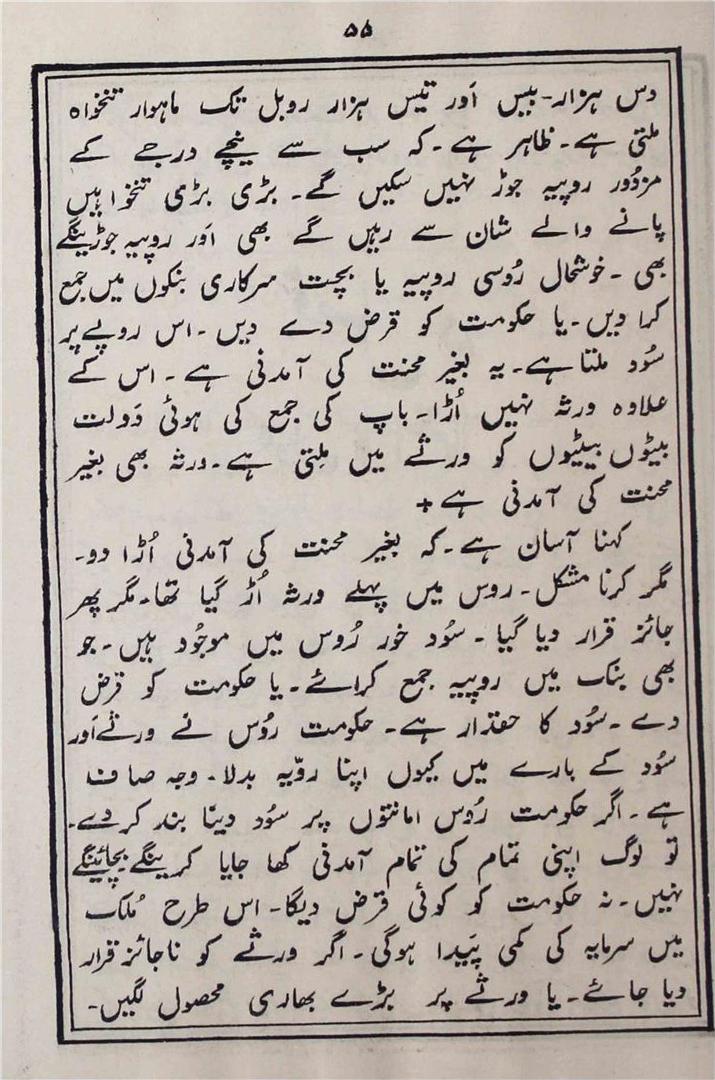 ۵۵
دس ہزار۔ بیس اَور تیس ہزار روبل تک ماہوار تنخواہ
ملتی ہے۔ ظاہر ہے۔ کہ سب سے نیچے درجے کے
مزدُور روپیہ جوڑ نہیں سکیں گے۔ بڑی بڑی تنخواہیں
پانے والے شان سے رہیں گے بھی اَور روپیہ جوڑینگے
بھی۔ خوشحال رُوسی روپیہ یا بچت سرکاری بنکوں میں جمع
کرا دیں۔ یا حکومت کو قرض دے دیں۔ اس روپے پر
سُود ملتا ہے۔ یہ بغیر محنت کی آمدنی ہے۔ اس کے
علاوہ ورثہ نہیں اُڑا۔ باپ کی جمع کی ہوئی دَولت
بیٹوں بیٹیوں کو ورثے میں مِلتی ہے۔ ورثہ بھی بغیر
محنت کی آمدنی ہے +
کہنا آسان ہے۔ کہ بغیر محنت کی آمدنی اُڑا دو۔
مگر کرنا مشکل۔ روس میں پہلے ورثہ اُڑ گیا تھا۔ مگر پھر
جائز قرار دیا گیا۔ سُود خور رُوس میں موجُود ہیں۔ جو
بھی بنک میں روپیہ جمع کرائے۔ یا حکومت کو قرض
دے۔ سُود کا حقدار ہے۔ حکومت رُوس نے ورثے اَور
سُود کے بارے میں کیوں اپنا روّیہ بدلا۔ وجہ صاف
ہے۔ اگر حکومت رُوس امانتوں پر سُود دینا بند کر دے۔
تو لوگ اپنی تمام کی تمام آمدنی کھا جایا کرینگے۔ بچائینگے
نہیں۔ نہ حکومت کو کوئی قرض دیگا۔ اس طرح مُلک
میں سرمایہ کی کمی پَیدا ہوگی۔ اگر ورثے کو ناجائز قرار
دیا جائے۔ یا ورثے پر بڑے بھاری محصول لگیں۔